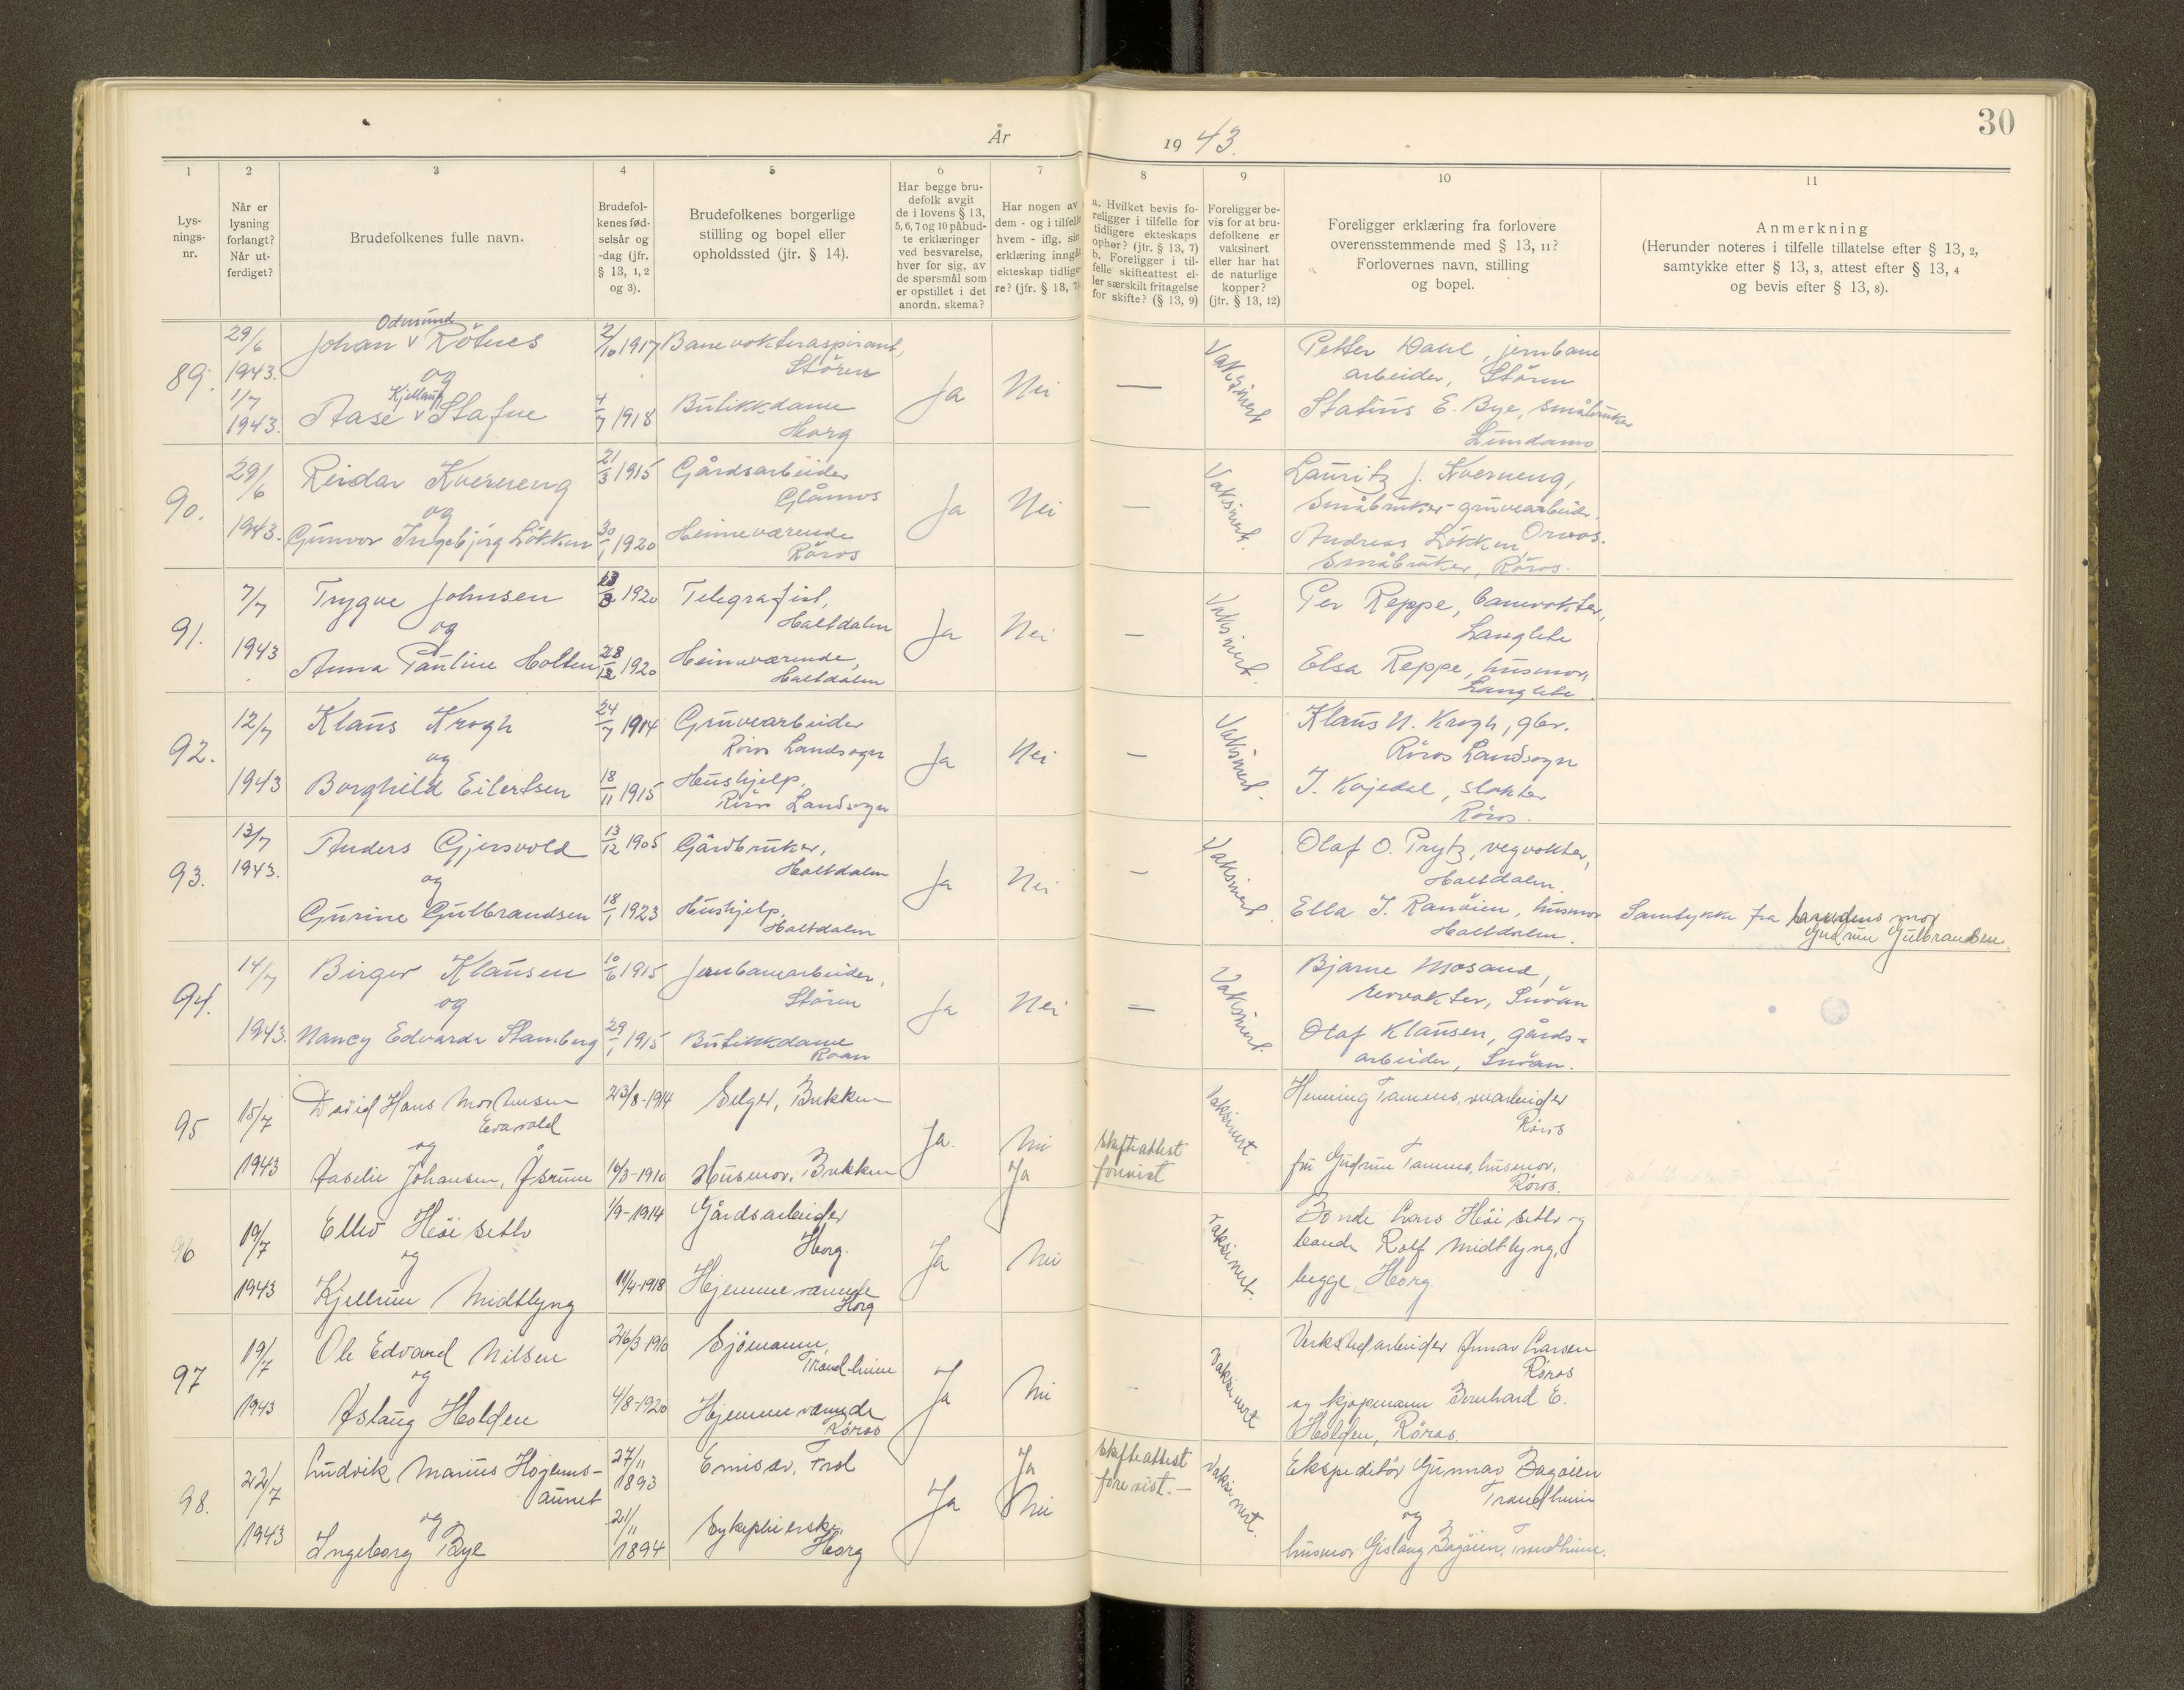 30
År 1943.
1 2 3 4 5 6 7 8 9 10 11
Lys-
nings-
nr.
Når er
lysning
forlangt?
Når ut-
ferdiget?
Brudefolkenes fulle navn.
Brudefol-
kenes fød-
selsår og
-dag (jfr.
§ 13, 1, 2
og 3).
Brudefolkenes borgerlige
stilling og bopel eller
opholdssted (jfr. § 14).
Har begge bru-
defolk avgit
de i lovens § 13,
5, 6, 7 og 10 påbud-
te erklæringer
ved besvarelse,
hver for sig, av
de spørsmål som
er opstillet i det
anordn. skema?
Har nogen av
dem - og i tilfelle
hvem - iflg. sin
erklæring inngåt
ekteskap tidlige-
re? (jfr. § 13, 7)
a. Hvilket bevis fo-
religger i tilfelle for
tidligere ekteskaps
ophør? (jfr. § 13, 7)
b. Foreligger i til-
felle skifteattest el-
ler særskilt fritagelse
for skifte? (§ 13, 9)
Foreligger be-
vis for at bru-
defolkene er
vaksinert
eller har hat
de naturlige
kopper?
(jfr. § 13, 12)
Foreligger erklæring fra forlovere
overensstemmende med § 13, 11?
Forlovernes navn, stilling
og bopel.
Anmerkning
(Herunder noteres i tilfelle tillatelse efter § 13, 2,
samtykke efter § 13, 3, attest efter § 13, 4
og bevis efter § 13, 8).
89.
29/6
1943.
1/7
1943.
Odmund
Johan v Rötnes
og
Aase v Stafne
2/10 1917
4/7 1918
Banevokteraspirant,
Stören
Butikkdame
Horg
Ja
Nei
—
Vaksinert
Petter Dahl, jernbane
arbeider, Stören
Statius E. Bye, småbruker
Lundamo
90.
29/6
1943.
Reidar Kverneng
og
Gunvor Ingebjörg Lökken
21/3 1915
30/1 1920
Gårdsarbeider
Glåmos
Heimeværende
Röros
Ja
Nei
—
Vaksinert.
Lauritz J. Kverneng,
Småbruker-gruvearbeider.
Orvos.
Andreas Lökken,
Småbruker, Röros.
91.
7/7
1943
Trygve Johnsen
og
Anna Pauline Holten
1920
1920
Telegrafist,
Haltdalen
Heimeværende,
Haltdalen
Ja
Nei
—
Vaksinert.
Per Reppe, banevokter,
Langlete
Elsa Reppe, husmor,
Langlete.
92.
12/7
1943
Klaus Krogh
og
Borghild Eilertsen
24/7 1914
18/11 1915
Gruvearbeider
Röros Landsogn
Hushjelp,
Röros Landsogn
Ja
Nei
—
Vaksinert.
Klaus N. Krogh, gbr.
Röros Landsogn
J. Kojedal, slakter
Röros.
93.
13/7
1943.
Anders Gjersvold
og
Gurine Gulbrandsen
13/12 1905
18/1 1923
Gårdbruker,
Haltdalen
Hushjelp,
Haltdalen
Ja
Nei
—
Vaksinert.
Olaf O. Prytz, vegvokter,
Haltdalen.
Ella J. Ramöien, husmor
Haltdalen.
Samtykke fra brudens mor
Gudrun Gulbrandsen.
94.
14/7
1943.
Birger Klausen
og
Nancy Edvarda Stamberg
10/6 1915
29/1 1915
Jernbanearbeider,
Stören
Butikkdame
Roan
Ja
Nei
—
Vaksinert.
Bjarne Mosand,
Snåan
Olaf Klausen, gårds-
arbeider, Snåan.
95
15/7
1943
David Hans Mortensen
Evavold
og
Aaselie Johansen, Åsrum
23/8-1914
16/3-1910
Selger, Brekken
Husmor, Brekken
Ja.
Nei
Ja
skifteattest
forevist
Vaksinert.
Henning Tamnes,
Röros
fru Gudrun Tamnes, husmor,
Röros.
96
19/7
1943
Ellev Höisetb
og
Kjellrun Midtlyng
1/9-1914
11/4-1918
Gårdsarbeider
Horg.
Hjemmeværende
Horg
Ja
Nei
—
Vaksinert.
Bonde Lars og
bonde Rolf Midtlyng,
begge Horg
97
19/7
1943
Ole Edvard Nilsen
og
Aslaug Holden
26/3 1910
4/8-1920
Sjömann,
Trondheim
Hjemmeværende
Röros
Ja
Nei
—
Vaksinert
Verkstedarbeider Gunnar Larsen
Röros
og kjöpmann Bernhard E.
Holden, Röros.
98.
22/7
1943
Ludvik Marius Hoglems-
aunet
og
Ingeborg Bye
27/11
1893
21/11
1894
Emisær, Frol
Sykepleierske,
Horg
Ja
Ja
Nei
skifteattest
forevist.—
Vaksinert.
Ekspeditör Gunnar Bagöien
Trondheim
og
husmor Gislaug Bagöien, Trondheim.